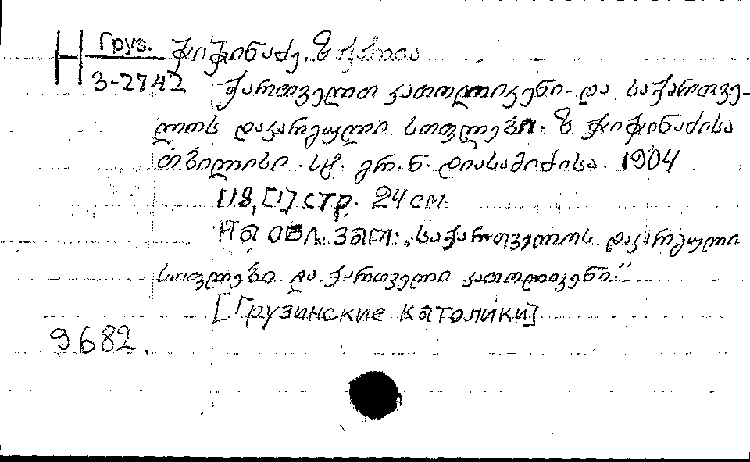 Груз. ჭიჭინაძე, ზ
3-2742 ქართველთ კათოლიკენი და საქართვე-
ლოს დაკარგული სოფლები. ზ. ჭიჭინაძისა
თბილისი. სტ. გრ. ნ. დიასამიძისა 1904
18, [1] стр. 24 см.
На обл. загл: „საქართველოს დაკარგული
სოფლები და ქართველი კათოლიკენი“
[Грузинские католики]
9682.